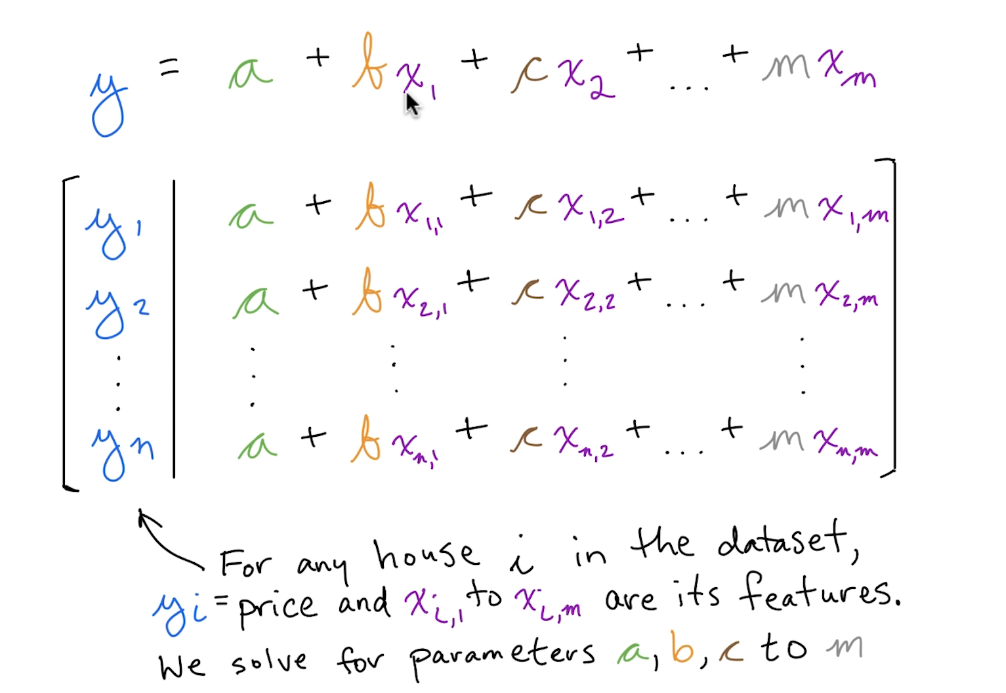 y = a + bx₁ + cx₂ + ... + mxₘ
y₁ a + bx₁,₁ + cx₁,₂ + ... + mx₁,ₘ
y₂ a + bx₂,₁ + cx₂,₂ + ... + mx₂,ₘ
⋮ ⋮ ⋮ ⋮ ⋮
yn a + bxₙ,₁ + cxₙ,₂ + ... + mxₙ,ₘ
For any house i in the dataset,
yi = price and xᵢ,₁ to xᵢ,ₘ are its features.
We solve for parameters a, b, c to m